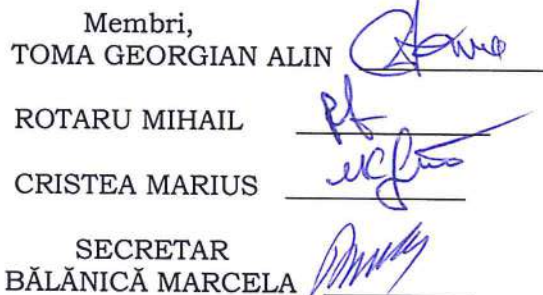 Membri,
TOMA GEORGIAN ALIN
ROTARU MIHAIL
CRISTEA MARIUS
SECRETAR
BĂLĂNICĂ MARCELA